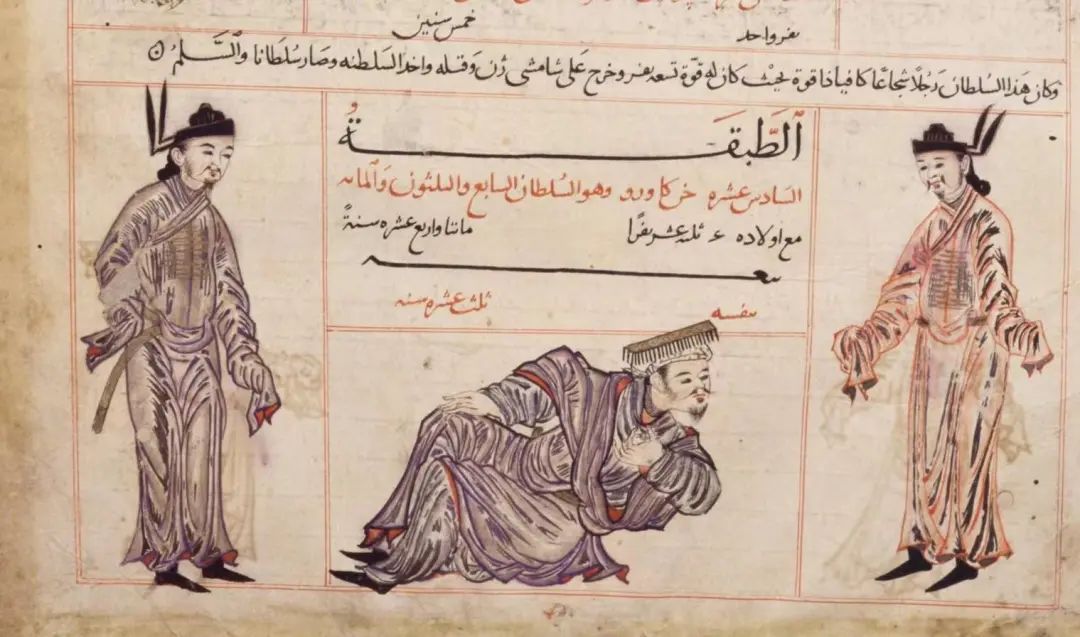 نفر واحد خمس سنين
وكان هذا السلطان رجلاً شجاعًا كافيا ذا قوة بحيث كان له قوة تسعه نفر وخرج على شامشى زن وقتله واخذ السلطنه وصار سلطانا والسَّلمُ
الطَّبقَةُ
السادس عشره وهو السلطان السابع والثلثون والمائه
مع اولاده ثلثه عشر نفرًا مائتا واربع عشره سنةً
نفسه ثلث عشره سنه